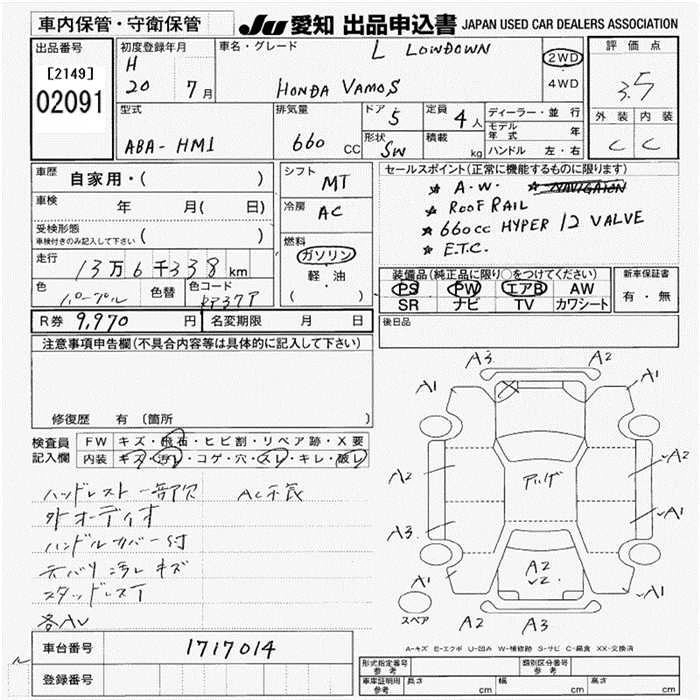 車内保管・守衛保管
JU 愛知 出品申込書 JAPAN USED CAR DEALERS ASSOCIATION
出品番号
[2149]
02091
初度登録年月
H
20 7月
車名・グレード
L LOWDOWN
HONDA VAMOS
2WD
4WD
評価点
3.5
外装 内装
C C
型式
ABA-HM1
排気量
660 CC
ドア 5
形状 SW
定員 4人
積載 kg
ディーラー・並行
モデル年式 年
ハンドル 左・右
車歴 自家用・( )
車検 年 月( 日)
受検形態
車検付きのみ記入して下さい ( )
走行 13万6千338km
色 パープル 色替 色コード RP37P
シフト MT
冷房 AC
燃料
ガソリン
軽・油
( )
セールスポイント(正常に機能するものに限ります)
★ A.W. ★ NAVIGATION
★ ROOF RAIL
★ 660cc HYPER 12 VALVE
★ E.T.C.
装備品(純正品に限り○をつけてください)
PS PW エアB AW
SR ナビ TV カワシート
新車保証書
有・無
R券 9,970 円 名変期限 月 日
後日品
注意事項申告欄(不具合内容等は具体的に記入して下さい)
修復歴 有 〔箇所 〕
検査員
記入欄
FW キズ・飛石・ヒビ割・リペア跡・X要
内装 キズ・汚レ・コゲ・穴・スレ・キレ・破レ
ハンドレスト一部欠 AC不良
外オーディオ
ハンドルカバー付
天バリ汚レキズ
スタッドレスT
各AU
A3 A2
A1 A1
A2 A2
A3 A1
A1 A1
A2
A2 A3
スペア
A-キズ E-エクボ U-凹み W-補修跡 S-サビ C-腐食 XX-交換済
車台番号 1717014
登録番号
形式指定番号 参考
類別区分番号 参考
車庫証明用 参考
長さ cm 幅 cm 高さ cm